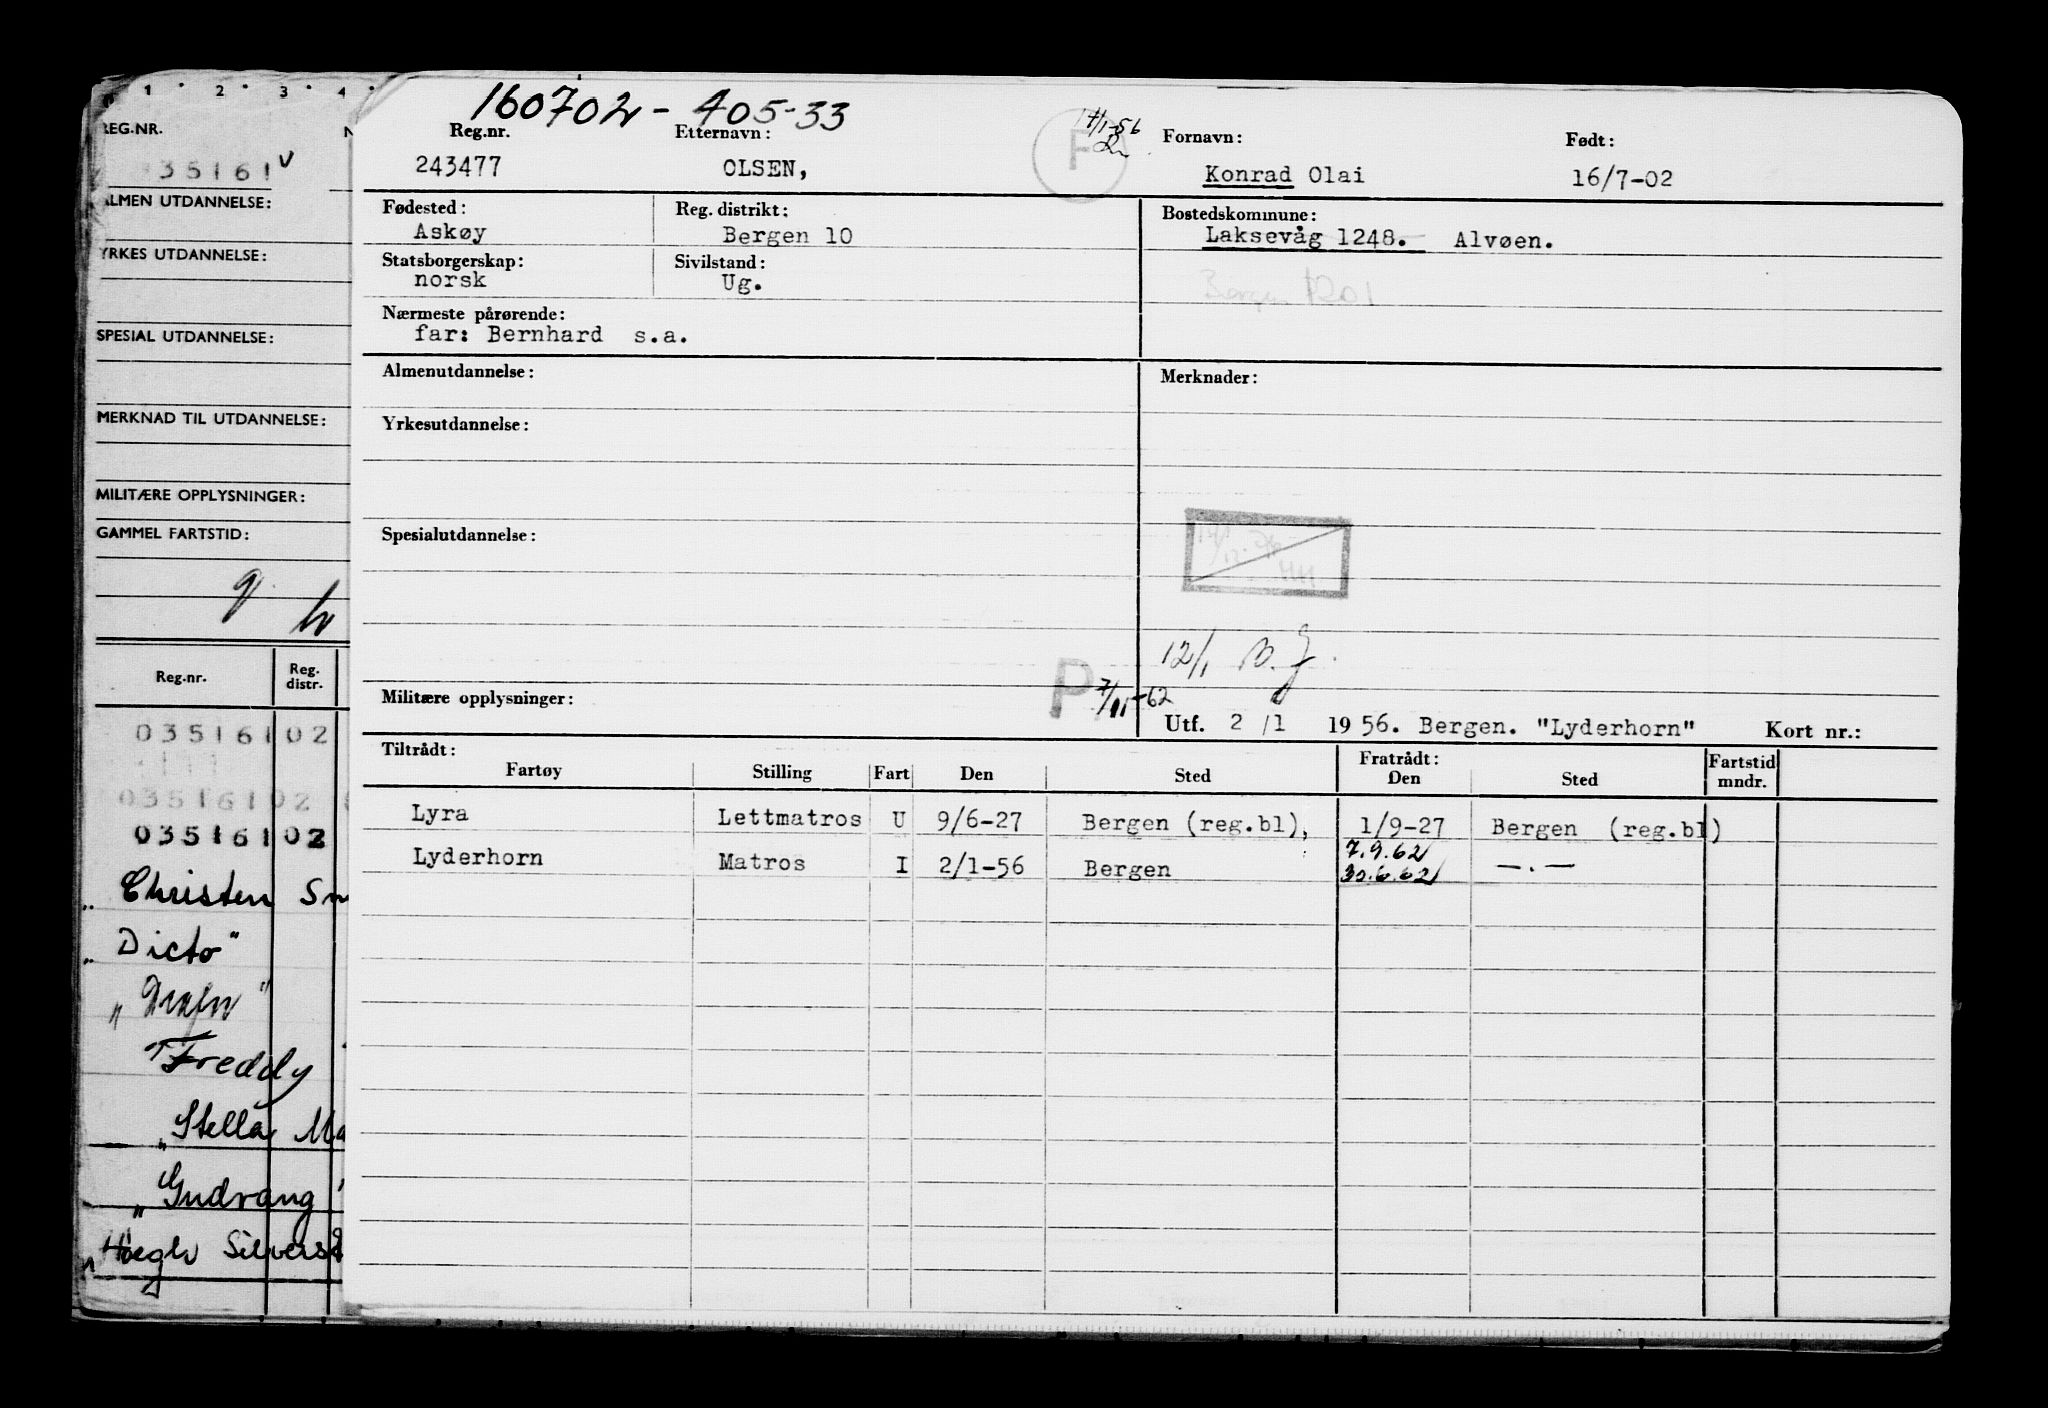 1 2 3 4
REG.NR.
35161 v
ALMEN UTDANNELSE:
YRKES UTDANNELSE:
SPESIAL UTDANNELSE:
MERKNAD TIL UTDANNELSE:
MILITÆRE OPPLYSNINGER:
GAMMEL FARTSTID:
Reg.nr. Reg. distr.
03516102
03516102
03516102
„Christen Sm
„Dicto"
"Freddy
„Stella Ma
„Gudvang"
„Høegh Silvers
160702 - 405-33
Reg.nr. Etternavn: F 17/1-56 Fornavn: Født:
243477 OLSEN, Konrad Olai 16/7-02
Fødested: Reg. distrikt: Bostedskommune:
Askøy Bergen 10 Laksevåg 1248. Alvøen.
Statsborgerskap: Sivilstand:
norsk Ug. Bergen 1301
Nærmeste pårørende:
far: Bernhard s.a.
Almenutdannelse: Merknader:
Yrkesutdannelse:
Spesialutdannelse:
12/1 B.J.
P 7/11-62
Militære opplysninger:
Utf. 2/1 1956. Bergen. "Lyderhorn" Kort nr.:
Tiltrådt: Fratrådt: Fartstid
Fartøy Stilling Fart Den Sted Den Sted mndr.
Lyra Lettmatros U 9/6-27 Bergen (reg.bl), 1/9-27 Bergen (reg.bl)
7.9.62
Lyderhorn Matros I 2/1-56 Bergen 30.6.62 —.—